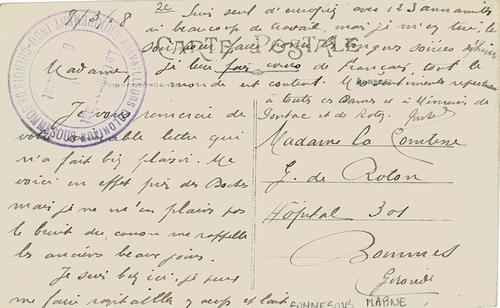 8/3/18
2c
Suis seul d'européen avec 123 annamites
beaucoup de travail mais je m'en tire, le
CARTE POSTALE
soir pour faire les longues soirées
Madame
je leur fais cours de français tout le
monde est content. Mes sentiments
à toutes ces Dames et à Messieurs de
Je vous remercie de
et de
votre aimable lettre qui
Madame la Comtesse
m'a fait big plaisir. Me
G. de Rolon
voici en effet près des Boches
mais je ne m'en plains pas
Hôpital 301
le bruit du canon me rappelle
les anciens beaux jours.
Bommes
Je suis bien ici, je puis
Gironde
me faire ravitailler
et lait
SOMMESOUS MARNE
TRAVAILLEURS COLONIAUX
INDO-CHINOIS